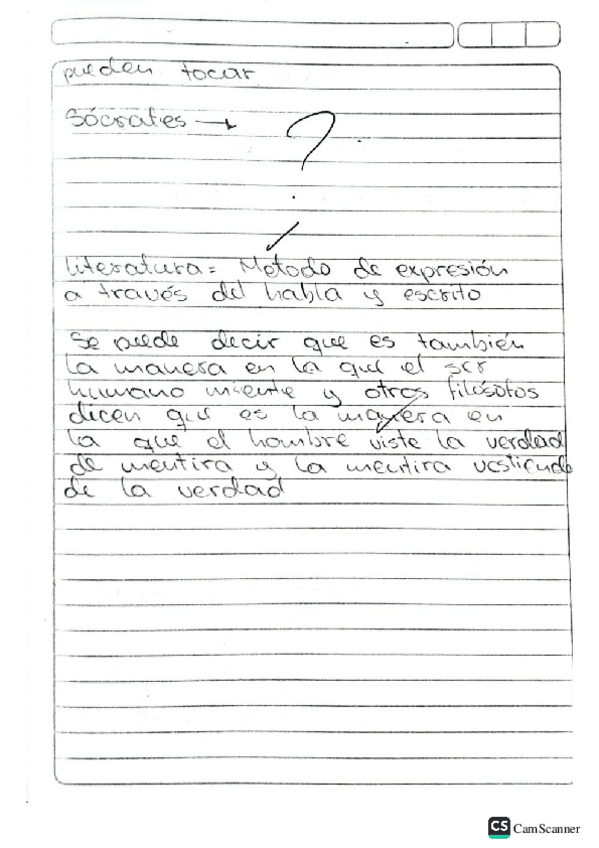 pueden tocar
Sócrates → ?
literatura = Metodo de expresión
a través del habla y escrito
Se puede decir que es también
la manera en la que el ser
humano miente y otros filósofos
dicen que es la manera en
la que el hombre viste la verdad
de mentira y la mentira vestirndo
de la verdad
CS CamScanner